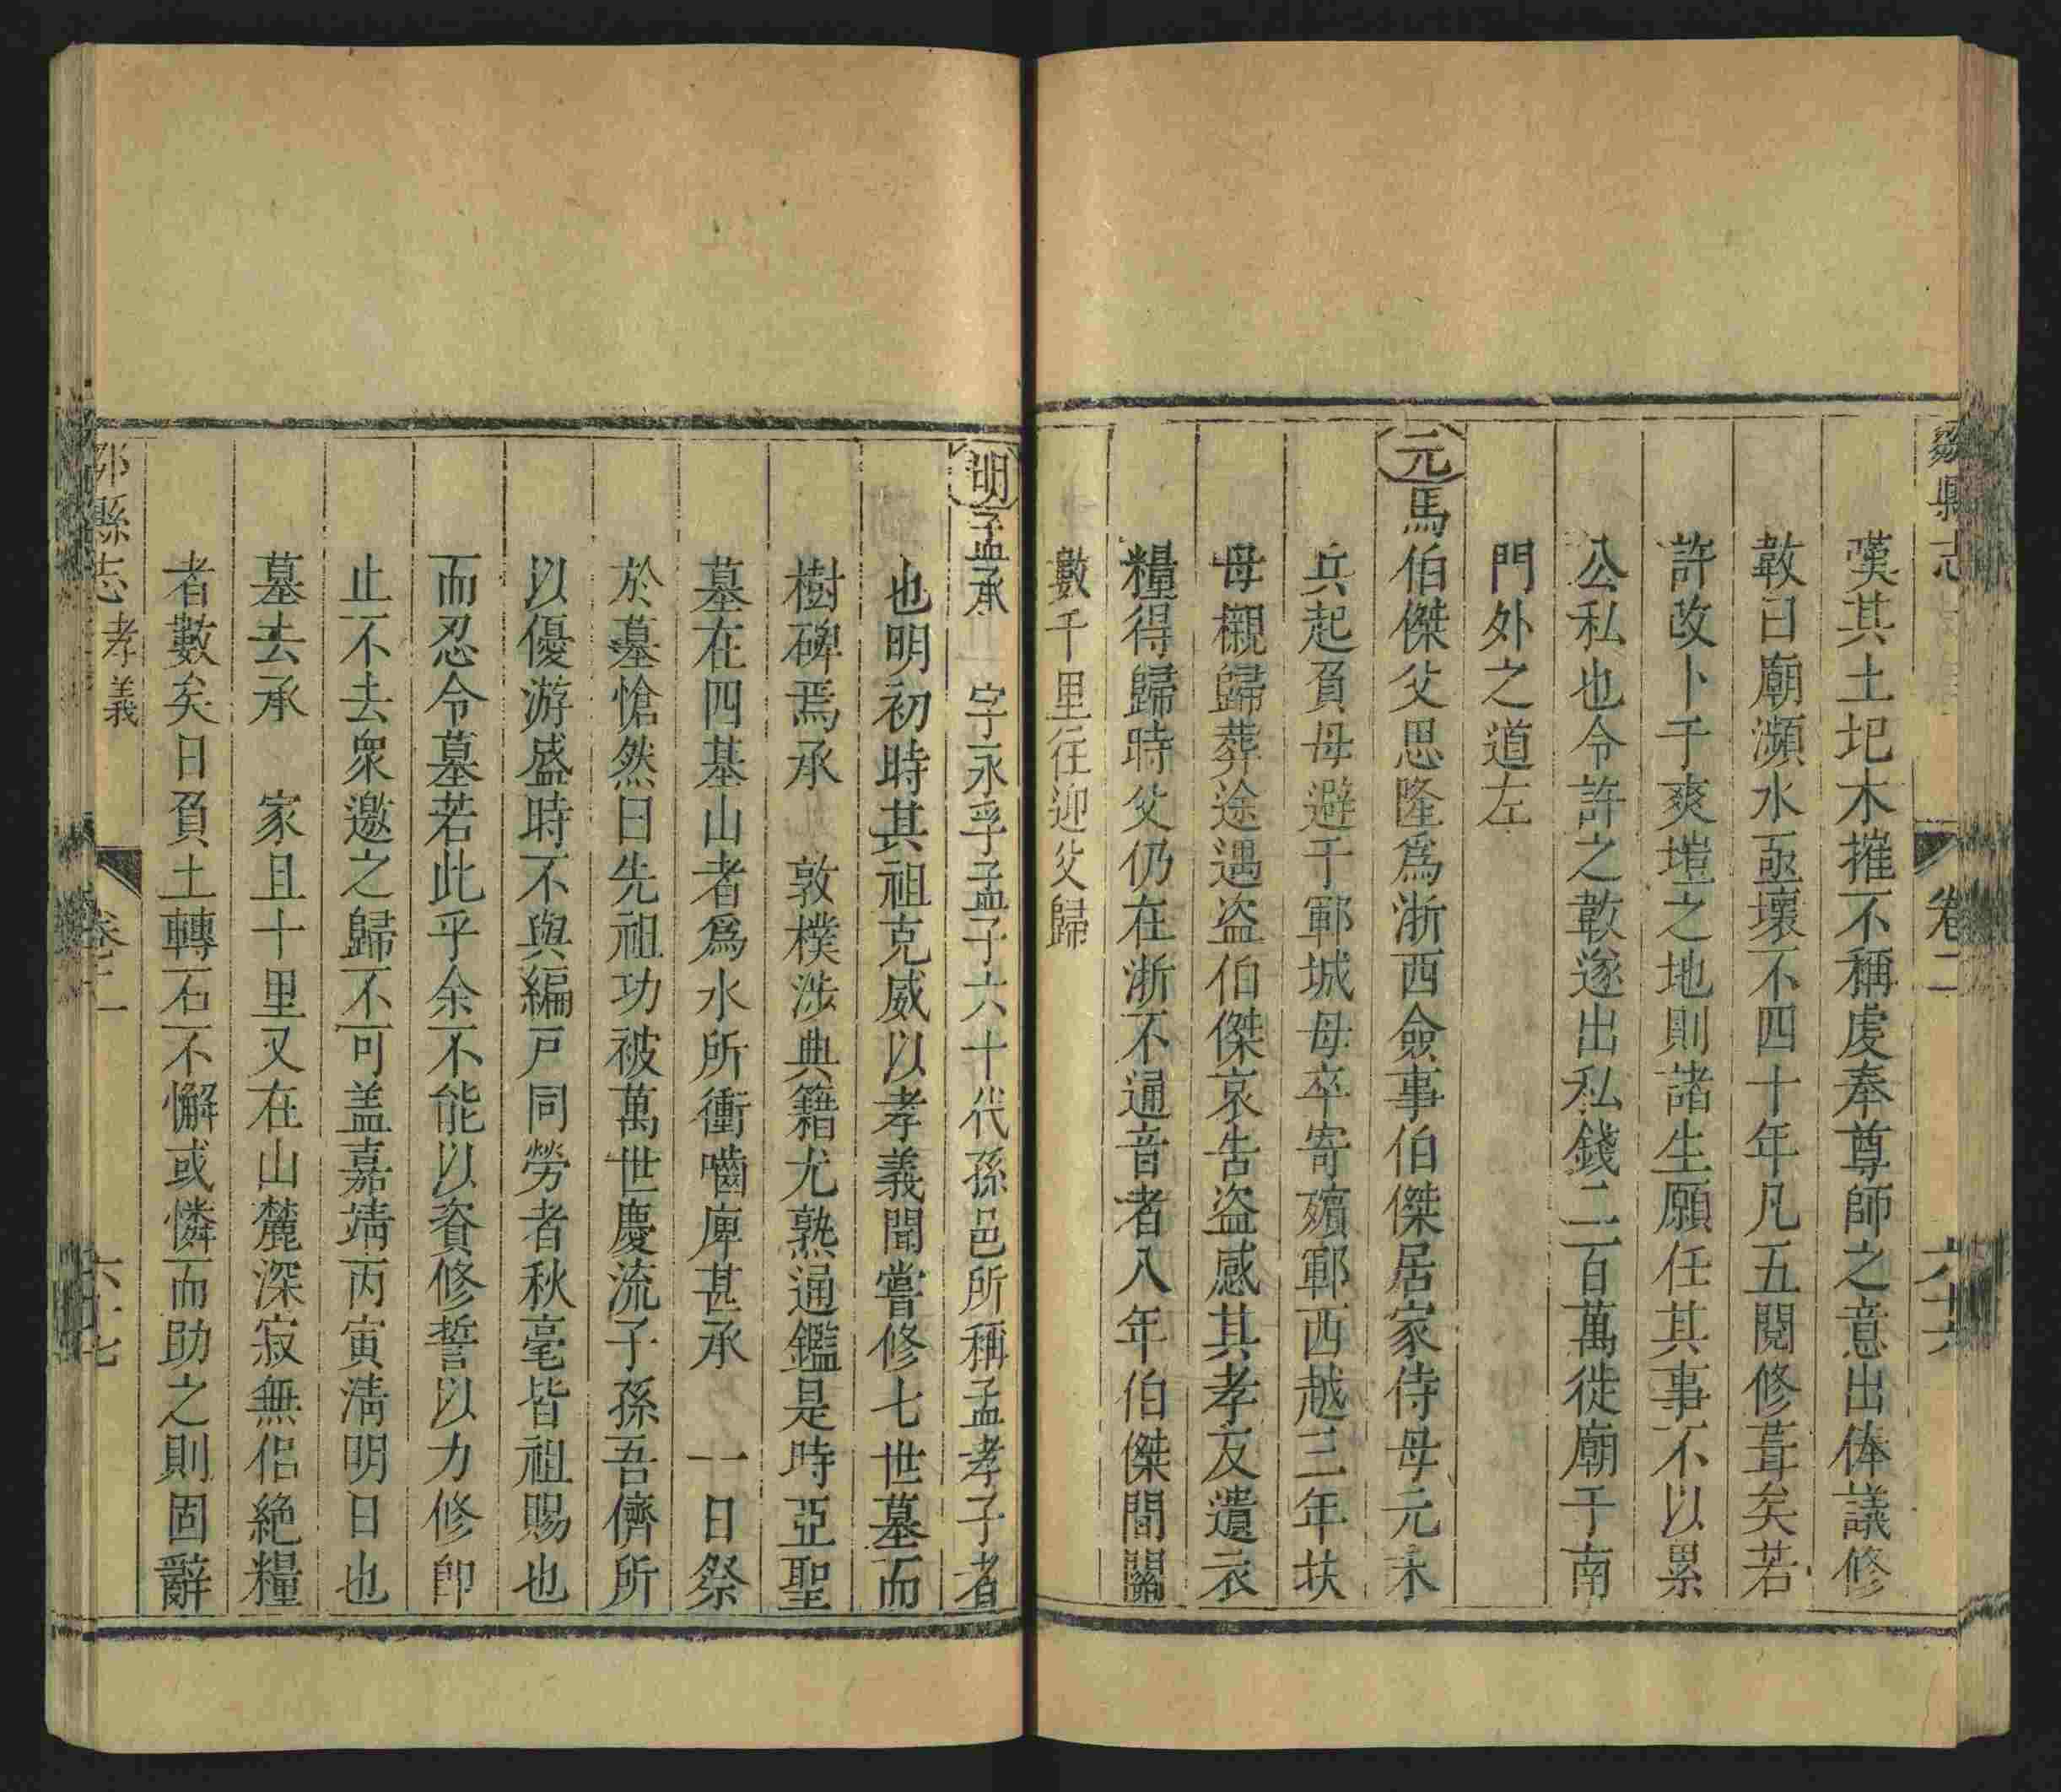 鄒縣志 卷二 六十六
嘆其土圮木摧不稱虔奉尊師之意出俸議修
敢曰廟瀕水亟壞不四十年凡五閱修葺矣若
許改卜于爽塏之地則諸生願任其事不以累
公私也令許之敢遂出私錢二百萬徙廟于南
門外之道左
元馬伯傑父思隆爲浙西僉事伯傑居家侍母元末
兵起負母避于鄆城母卒寄殯鄆西越三年扶
母櫬歸葬途遇盗伯傑哀告盗感其孝友遺衣
糧得歸時父仍在浙不通音者八年伯傑間關
數千里往迎父歸
明孟承 字永孚孟子六十代孫邑所稱孟孝子者
也明初時其祖克威以孝義聞嘗修七世墓而
樹碑焉承 敦樸涉典籍尤熟通鑑是時亞聖
墓在四基山者爲水所衝嚙庳甚承 一日祭
於墓愴然曰先祖功被萬世慶流子孫吾儕所
以優游盛時不與編戸同勞者秋毫皆祖賜也
而忍令墓若此乎余不能以資修誓以力修卽
止不去衆邀之歸不可盖嘉靖丙寅清明日也
墓去承 家且十里又在山麓深寂無侣絶糧
者數矣日負土轉石不懈或憐而助之則固辭
鄒縣志 孝義 卷二 六十七